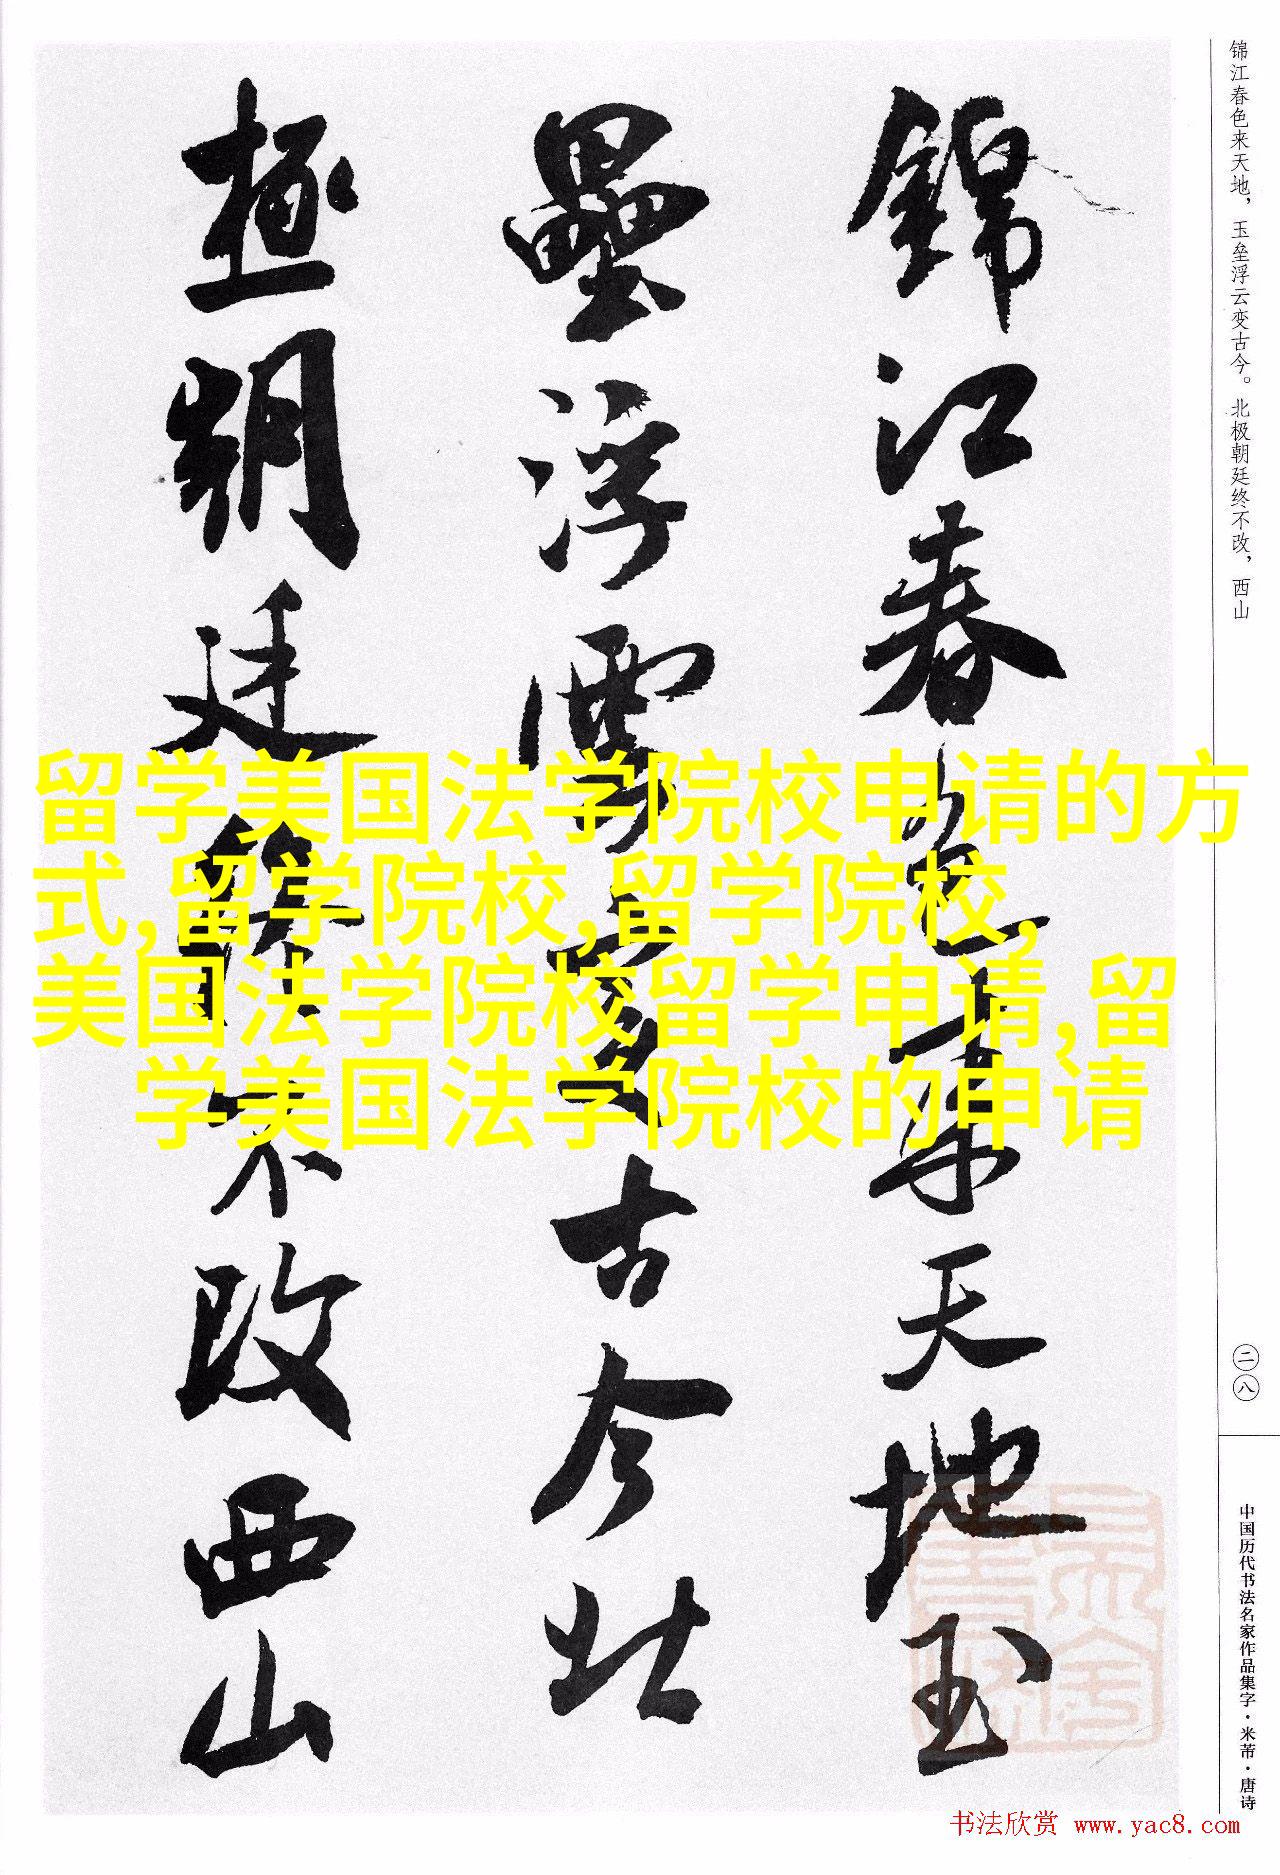 锦江春色来天地，玉垒浮云变古今。北极朝廷终不改，西山
錦江春色来天地玉
壘浮雲變古今北
極朝廷終不改西山
留学美国法学院校申请的方
式,留学院校,留学院校,
美国法学院校留学申请,留
学美国法学院校的申请
二八
中国历代书法名家作品集字·米芾·唐诗
书法欣赏 www.yac8.com